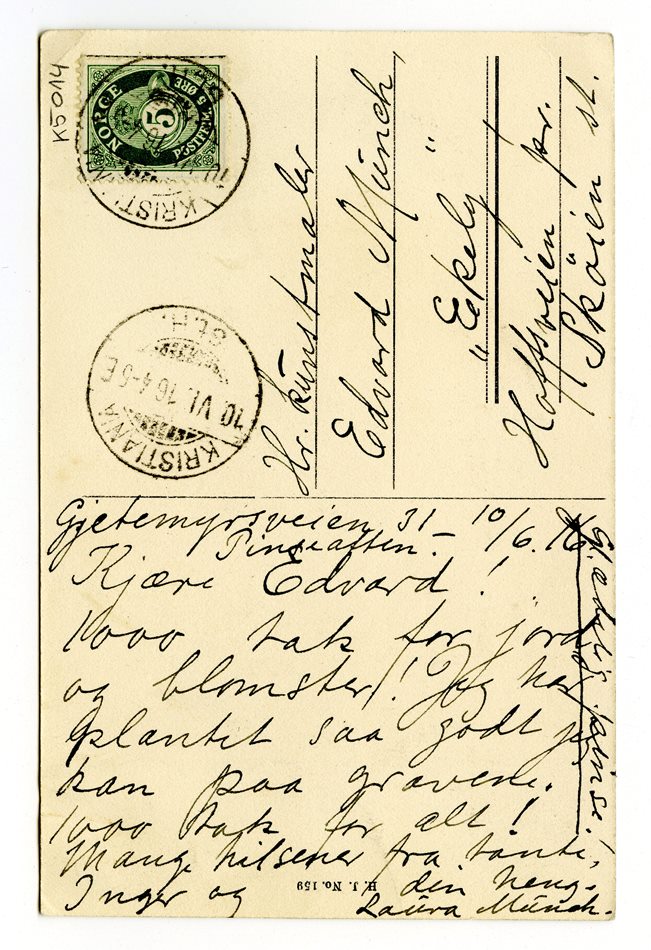 K5014
NORGE
5
POSTFRIM. 5 ØRE
KRISTIANIA
10 VI. 16 4-5 E
Hr. Kunstmaler
Edvard Münch,
"Ekely"
Hoffsveien pr.
Skøien st.
Gjetemyrsveien 31 - 10/6.16
Pinseaften.-
Kjære Edvard!
1000 tak for jord
og blomster! Jeg har
plantet saa godt jeg
kan paa gravene.
1000 tak for alt!
Mange hilsener fra tante,
Inger og den heng.
Laura Münch.
Glædelig pinse!
H. J. No. 159